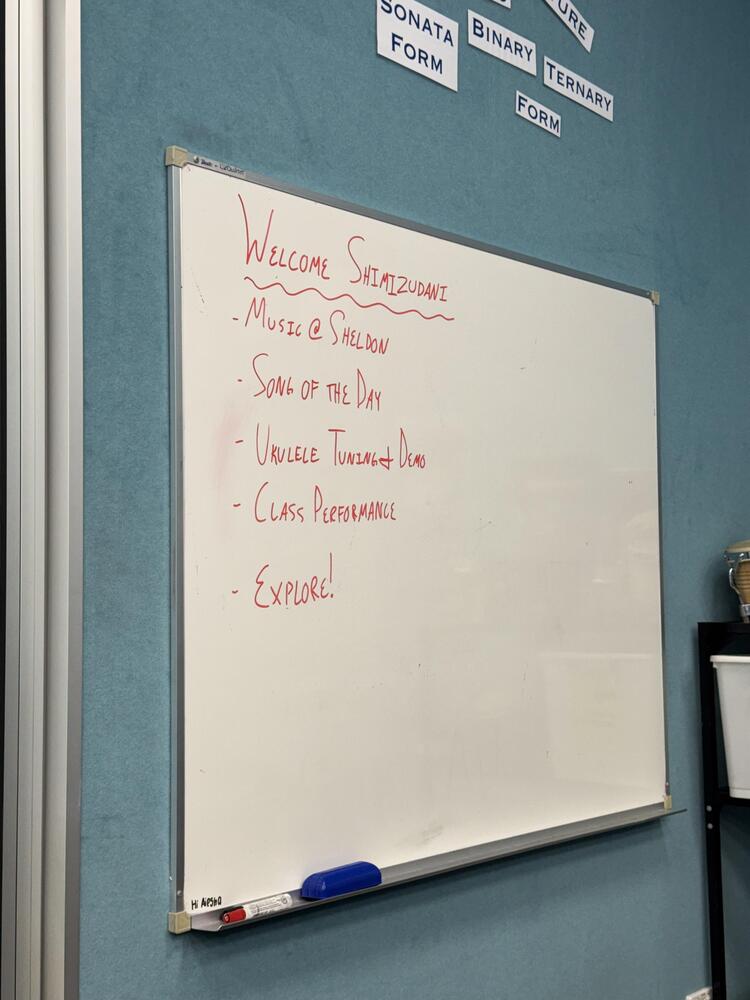 SONATA
FORM
BINARY
TERNARY
FORM
WELCOME SHIMIZUDANI
- MUSIC @ SHELDON
- SONG OF THE DAY
- UKULELE TUNING & DEMO
- CLASS PERFORMANCE
- EXPLORE!
Hi Aiesha